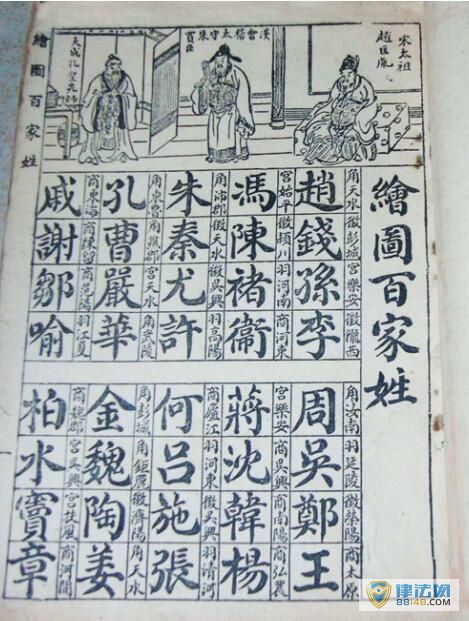 繪圖百家姓
宋太祖
趙匡胤
漢會稽太守朱
買臣
大成孔聖先師
角天水 徵彭城 宮樂安 徵隴西
趙錢孫李
角汝南 羽延陵 徵滎陽 商太原
周吳鄭王
宮始平 徵潁川 羽河南 商河東
馮陳褚衞
宮樂安 商吳興 商南陽 商弘農
蔣沈韓楊
角沛郡 徵天水 徵吳興 羽高陽
朱秦尤許
商廬江 羽河東 徵吳興 羽清河
何呂施張
角東魯 角譙郡 宮天水 角武陵
孔曹嚴華
角彭城 角鉅鹿 徵濟陽 角天水
金魏陶姜
商東海 商陳留 商范陽 羽江夏
戚謝鄒喻
商魏郡 宮吳興 宮扶風 商河間
柏水竇章
繪圖百家姓
律法网
88148.com